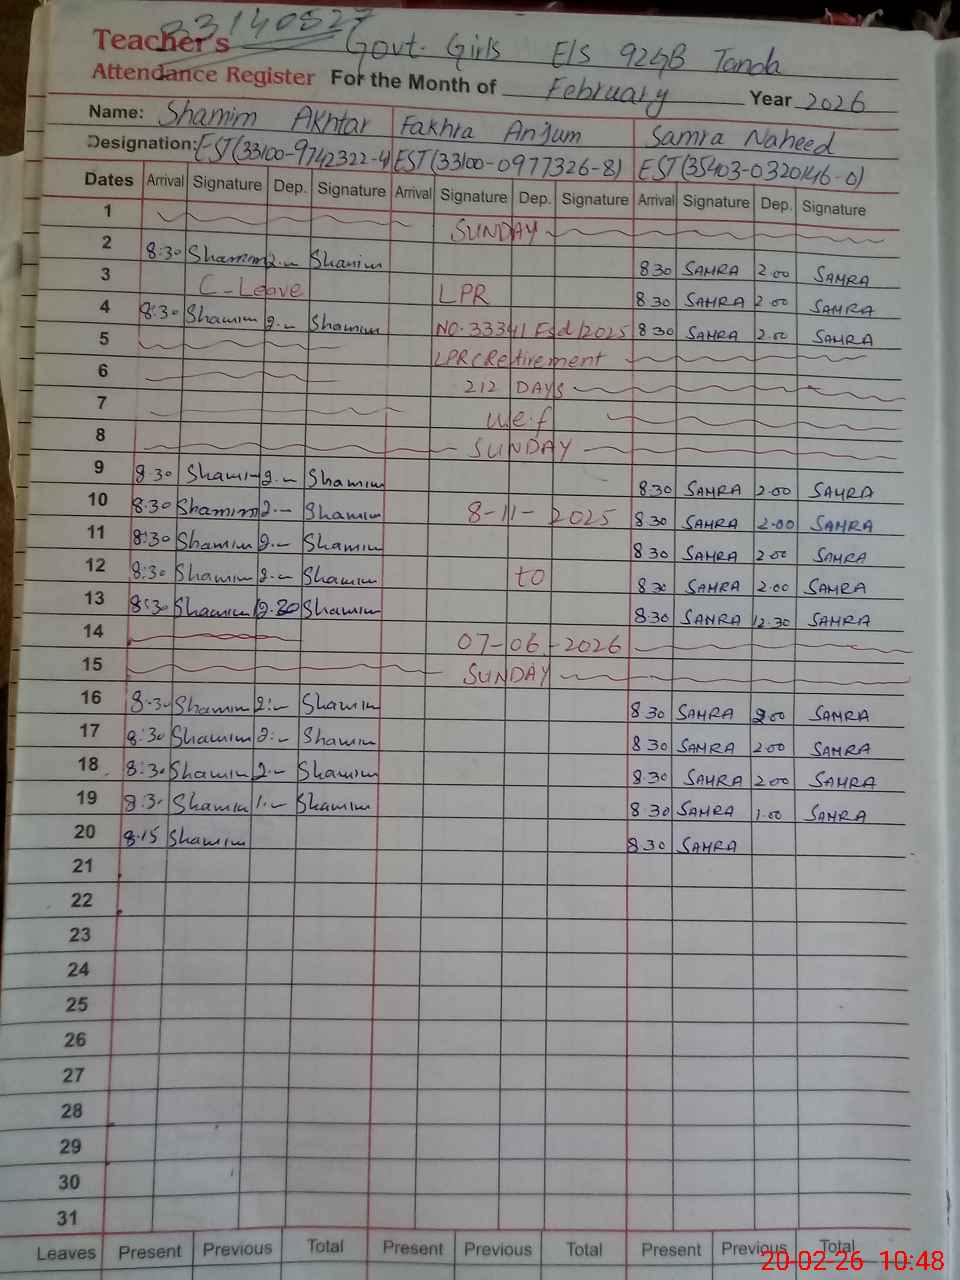 33140527
Teacher's Govt. Girls E/S 92GB Tanda
Attendance Register For the Month of February Year 2026
Name: Shamim Akhtar Fakhra Anjum Samra Naheed
Designation: EST(33100-9742322-4) EST(33100-0977326-8) EST(35403-0320146-0)
Dates Arrival Signature Dep. Signature Arrival Signature Dep. Signature Arrival Signature Dep. Signature
1 SUNDAY
2 8:30 Shamim 2.- Shamim 8 30 SAMRA 2.00 SAMRA
3 C-Leave LPR 8 30 SAMRA 2.00 SAMRA
4 8:30 Shamim 2.- Shamim NO. 33341 Fsd/2025 8 30 SAMRA 2.00 SAMRA
5 LPR(Retirement
6 212 DAYS
7 w.e.f
8 SUNDAY
9 8.30 Shamim 2.- Shamim 8.30 SAMRA 2.00 SAMRA
10 8.30 Shamim 2.- Shamim 8-11-2025 8 30 SAMRA 2.00 SAMRA
11 8:30 Shamim 2.- Shamim 8 30 SAMRA 2.00 SAMRA
12 8:30 Shamim 2.- Shamim to 8 30 SAMRA 2.00 SAMRA
13 8:30 Shamim 12.30 Shamim 8.30 SAMRA 12.30 SAMRA
14 07-06-2026
15 SUNDAY
16 8.30 Shamim 2:- Shamim 8 30 SAMRA 2.00 SAMRA
17 8:30 Shamim 2:- Shamim 8.30 SAMRA 2.00 SAMRA
18 8:30 Shamim 2.- Shamim 8.30 SAMRA 2.00 SAMRA
19 8:30 Shamim 1.- Shamim 8.30 SAMRA 1.00 SAMRA
20 8.15 Shamim 8.30 SAMRA
21
22
23
24
25
26
27
28
29
30
31
Leaves Present Previous Total Present Previous Total Present Previous Total
20-02-26 10:48